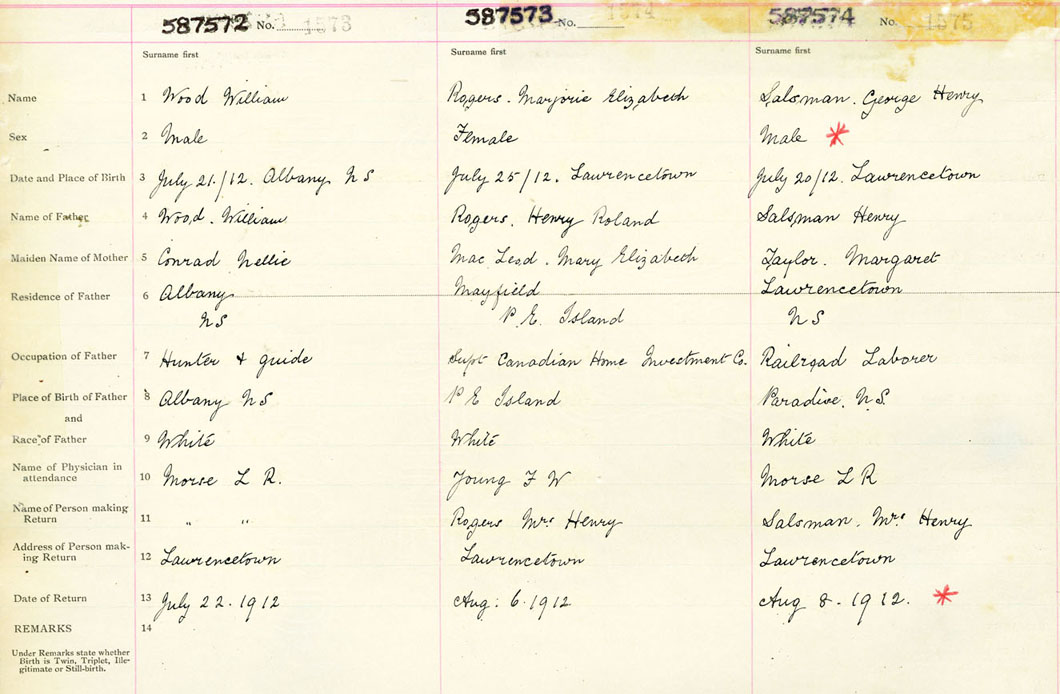 587572 No. 1573 587573 No. 1574 587574 No. 1575
Surname first Surname first Surname first
Name 1 Wood William Rogers. Marjorie Elizabeth Salsman. George Henry
Sex 2 Male Female Male *
Date and Place of Birth 3 July 21/12. Albany NS July 25/12. Lawrencetown July 20/12. Lawrencetown
Name of Father 4 Wood. William Rogers. Henry Roland Salsman Henry
Maiden Name of Mother 5 Conrad Nellie Mac Leod. Mary Elizabeth Taylor. Margaret
Residence of Father 6 Albany Mayfield Lawrencetown
NS P. E. Island NS
Occupation of Father 7 Hunter & guide Supt Canadian Home Investment Co. Railroad Laborer
Place of Birth of Father 8 Albany NS P E Island Paradise. N.S.
and
Race of Father 9 White White White
Name of Physician in
attendance 10 Morse L R. Young F W Morse L R
Name of Person making
Return 11 " " Rogers Mrs Henry Salsman. Mrs Henry
Address of Person mak-
ing Return 12 Lawrencetown Lawrencetown Lawrencetown
Date of Return 13 July 22. 1912 Aug: 6. 1912 Aug 8. 1912. *
REMARKS 14
Under Remarks state whether
Birth is Twin, Triplet, Ille-
gitimate or Still-birth.